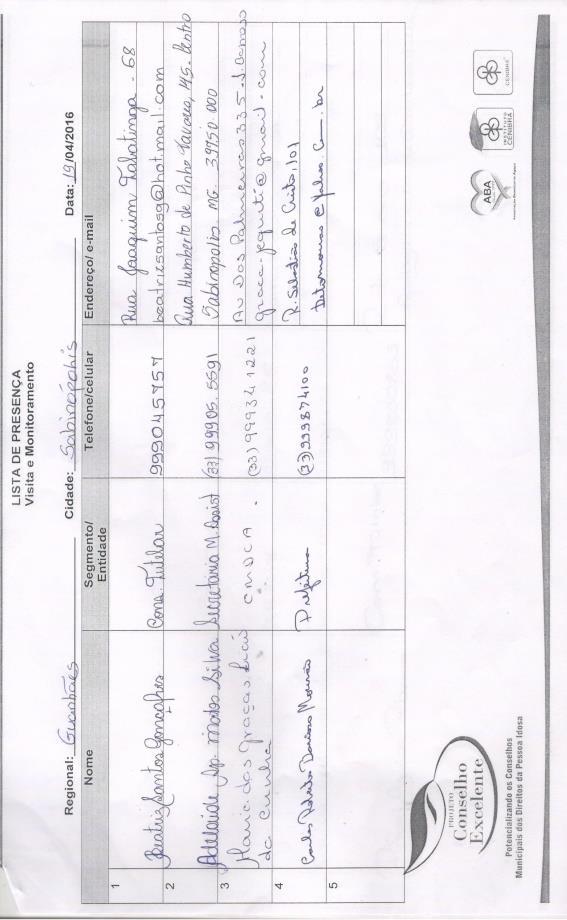 LISTA DE PRESENÇA
Visita e Monitoramento
Regional: Guanhães Cidade: Sabinópolis Data: 19/04/2016
Nome Segmento/ Entidade Telefone/celular Endereço/ e-mail
1 Beatriz Santos Gonçalves Cons. Tutelar 999045757 Rua Joaquim Tabatinga - 68
beatriz.santosg@hotmail.com
2 Adelaide Ap. Matos Silva Secretaria M. Assist (33) 99905.5591 Rua Humberto de Pinho Tavares, 145 - Centro
Sabinopolis MG 39750.000
3 Maria das Graças
da Cunha CMDCA. (33) 999341221 Av Dos Palmeiras 335 -
@gmail.com
4 Carlos Mourão Prefeitura (33) 999874100 R. Sebastião de 101
@yahoo.com.br
5
PROJETO
Conselho
Excelente
Potencializando os Conselhos
Municipais dos Direitos da Pessoa Idosa
ABA
CENIBRA
CENIBRA